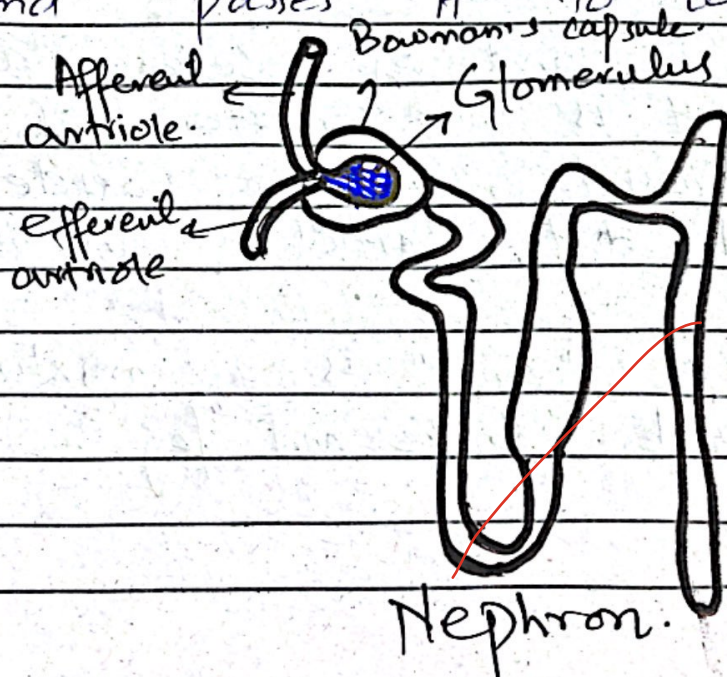 passes
Bowman's capsule.
Afferent
artriole.
Glomerulus
efferent
artriole
Nephron.